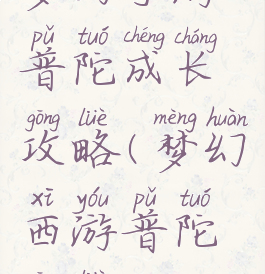 pǔ tuó chéng cháng
普陀成长
gōng lüè mèng huàn
攻略(梦幻
xī yóu pǔ tuó
西游普陀